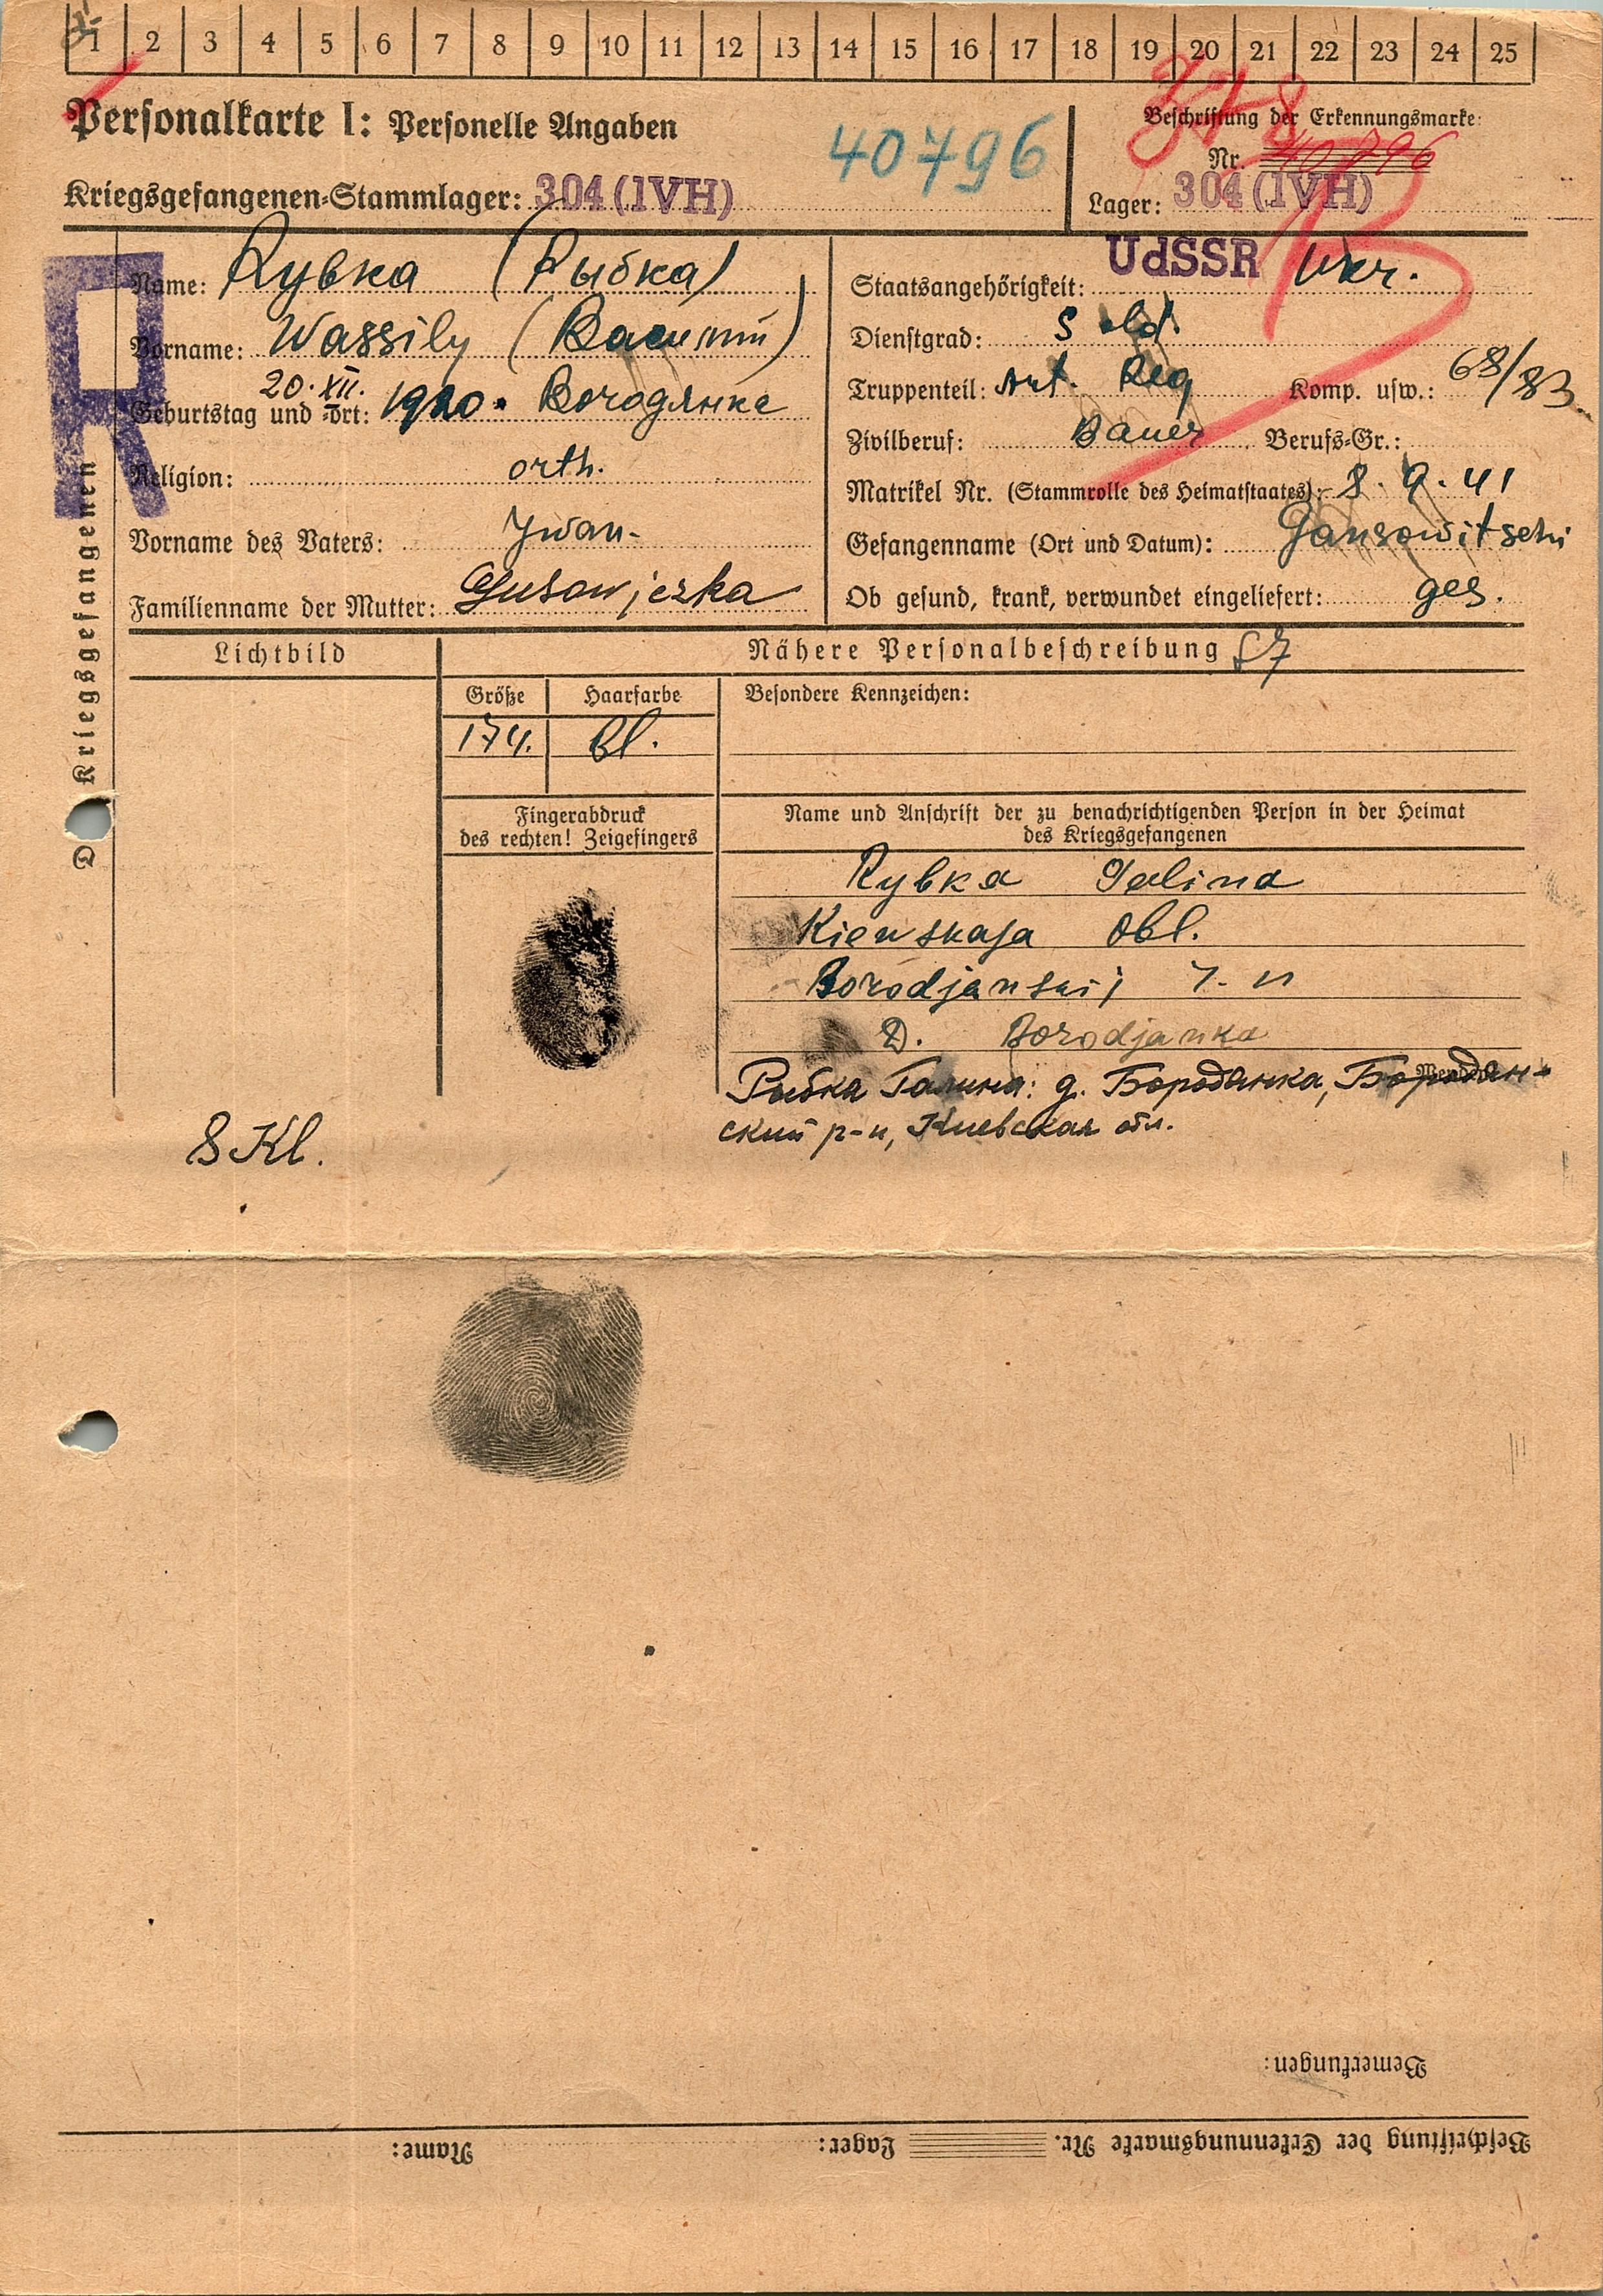 1 2 3 4 5 6 7 8 9 10 11 12 13 14 15 16 17 18 19 20 21 22 23 24 25
Personalkarte I: Personelle Angaben
40796
Beschriftung der Erkennungsmarke:
Nr. 40796
Kriegsgefangenen-Stammlager: 304 (IVH)
Lager: 304 (IVH)
R
Des Kriegsgefangenen
Name: Rybka (Рыбка)
Vorname: Wassily (Василий)
20. XII.
Geburtstag und -ort: 1920. Бородянке
Religion: orth.
Vorname des Vaters: Iwan-
Familienname der Mutter: Gusowjezka
Staatsangehörigkeit: UdSSR Ukr.
Dienstgrad: Sold.
Truppenteil: Art. Reg Komp. usw.: 68/83
Zivilberuf: Bauer Berufs-Gr.:
Matrikel Nr. (Stammrolle des Heimatstaates): 8.9.41
Gefangenname (Ort und Datum): Gansowitschi
Ob gesund, krank, verwundet eingeliefert: ges.
Lichtbild
Nähere Personalbeschreibung
Größe Haarfarbe Besondere Kennzeichen:
174. bl.
Fingerabdruck
des rechten! Zeigefingers
Name und Anschrift der zu benachrichtigenden Person in der Heimat
des Kriegsgefangenen
Rybka Galina
Kiewskaja Obl.
Borodjanskij
D. Borodjanka
Рыбка Галина: д. Бородянка, Бородян-
ский р-н, Киевская обл.
8 Kl.
Bemerkungen:
Beschriftung der Erkennungsmarke Nr. Lager: Name: